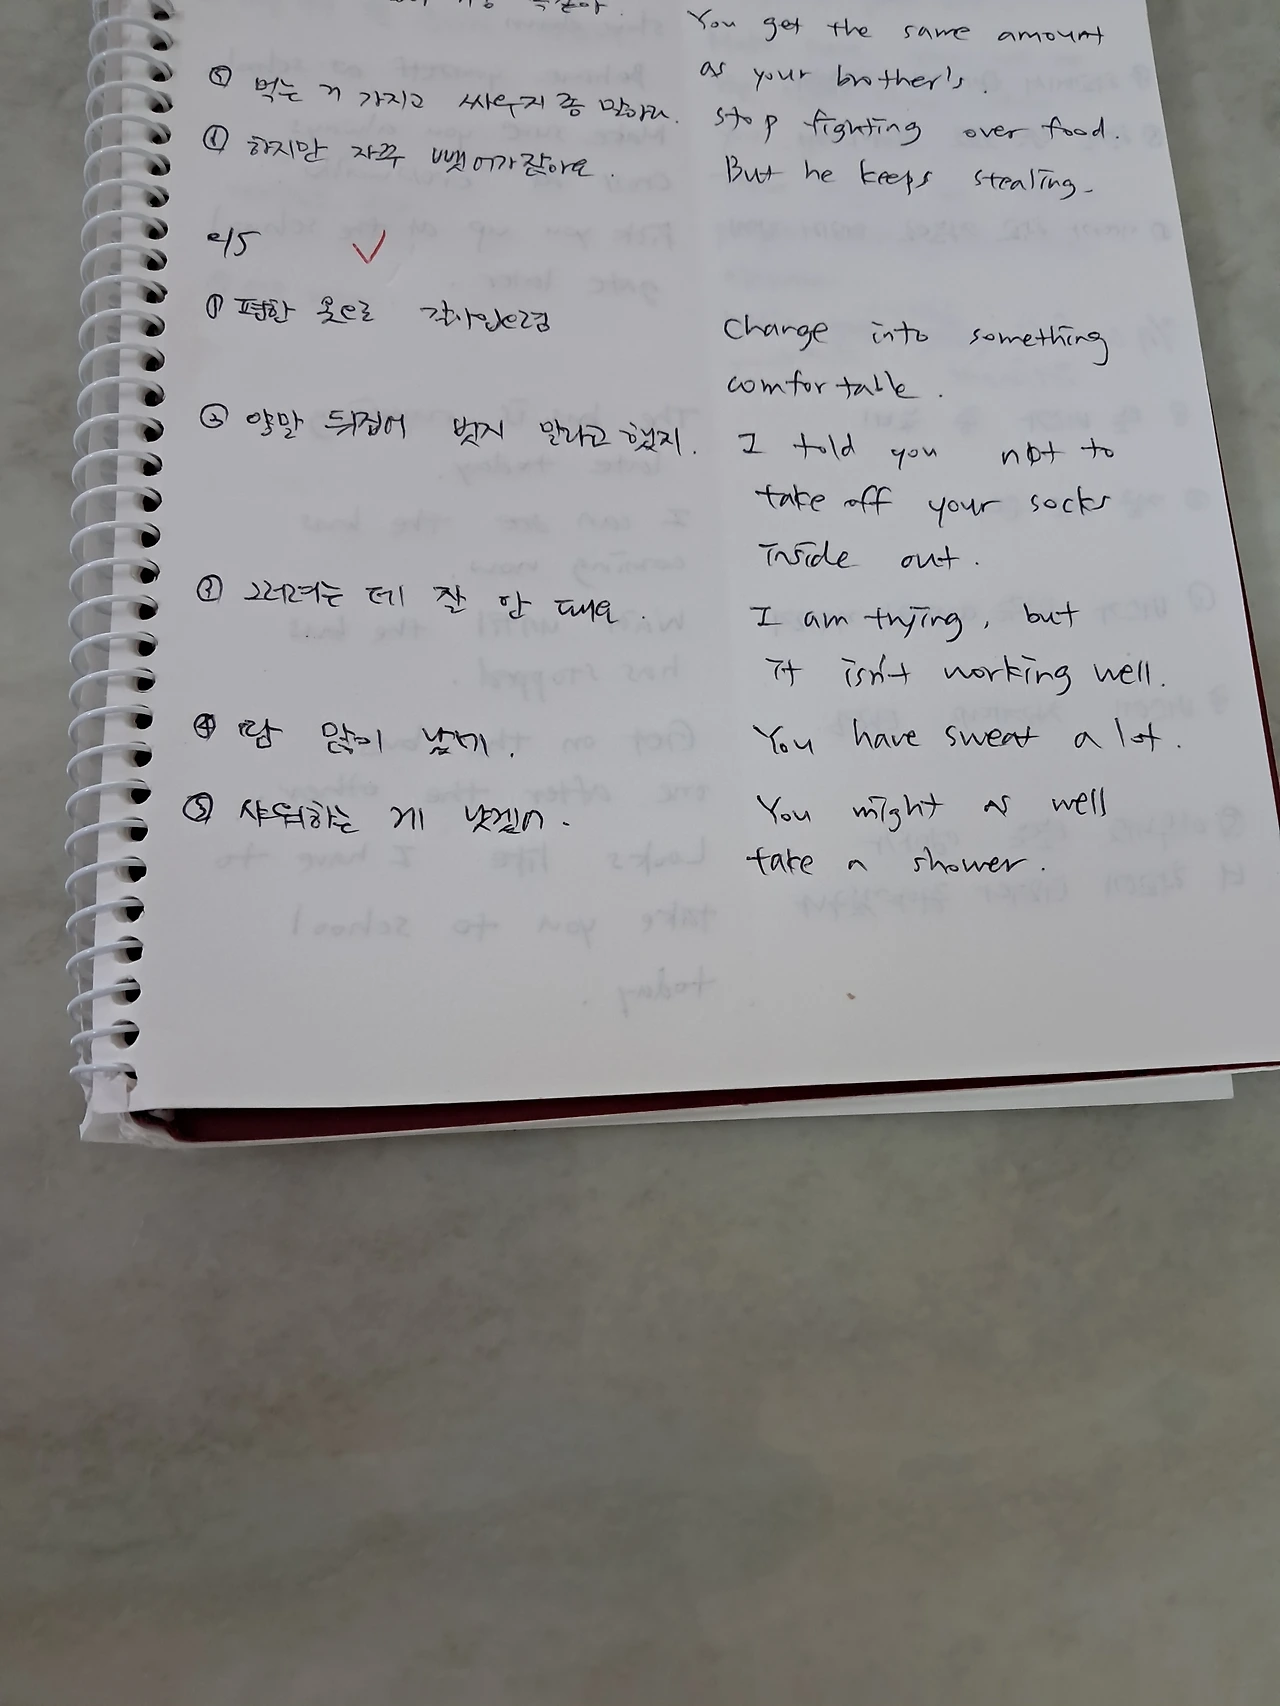 You get the same amount
as your brother's.
⑤ 먹는 거 가지고 싸우지 좀 말아라.
stop fighting over food.
⑥ 하지만 자꾸 뺏어가잖아요.
But he keeps stealing.
9/5
① 편한 옷으로 갈아입으렴
Change into something
comfortable.
② 양말 뒤집어 벗지 말라고 했지.
I told you not to
take off your socks
inside out.
③ 그러려는 데 잘 안 돼요.
I am trying, but
it isn't working well.
④ 땀 많이 났네.
You have sweat a lot.
⑤ 샤워하는 게 낫겠어.
You might as well
take a shower.